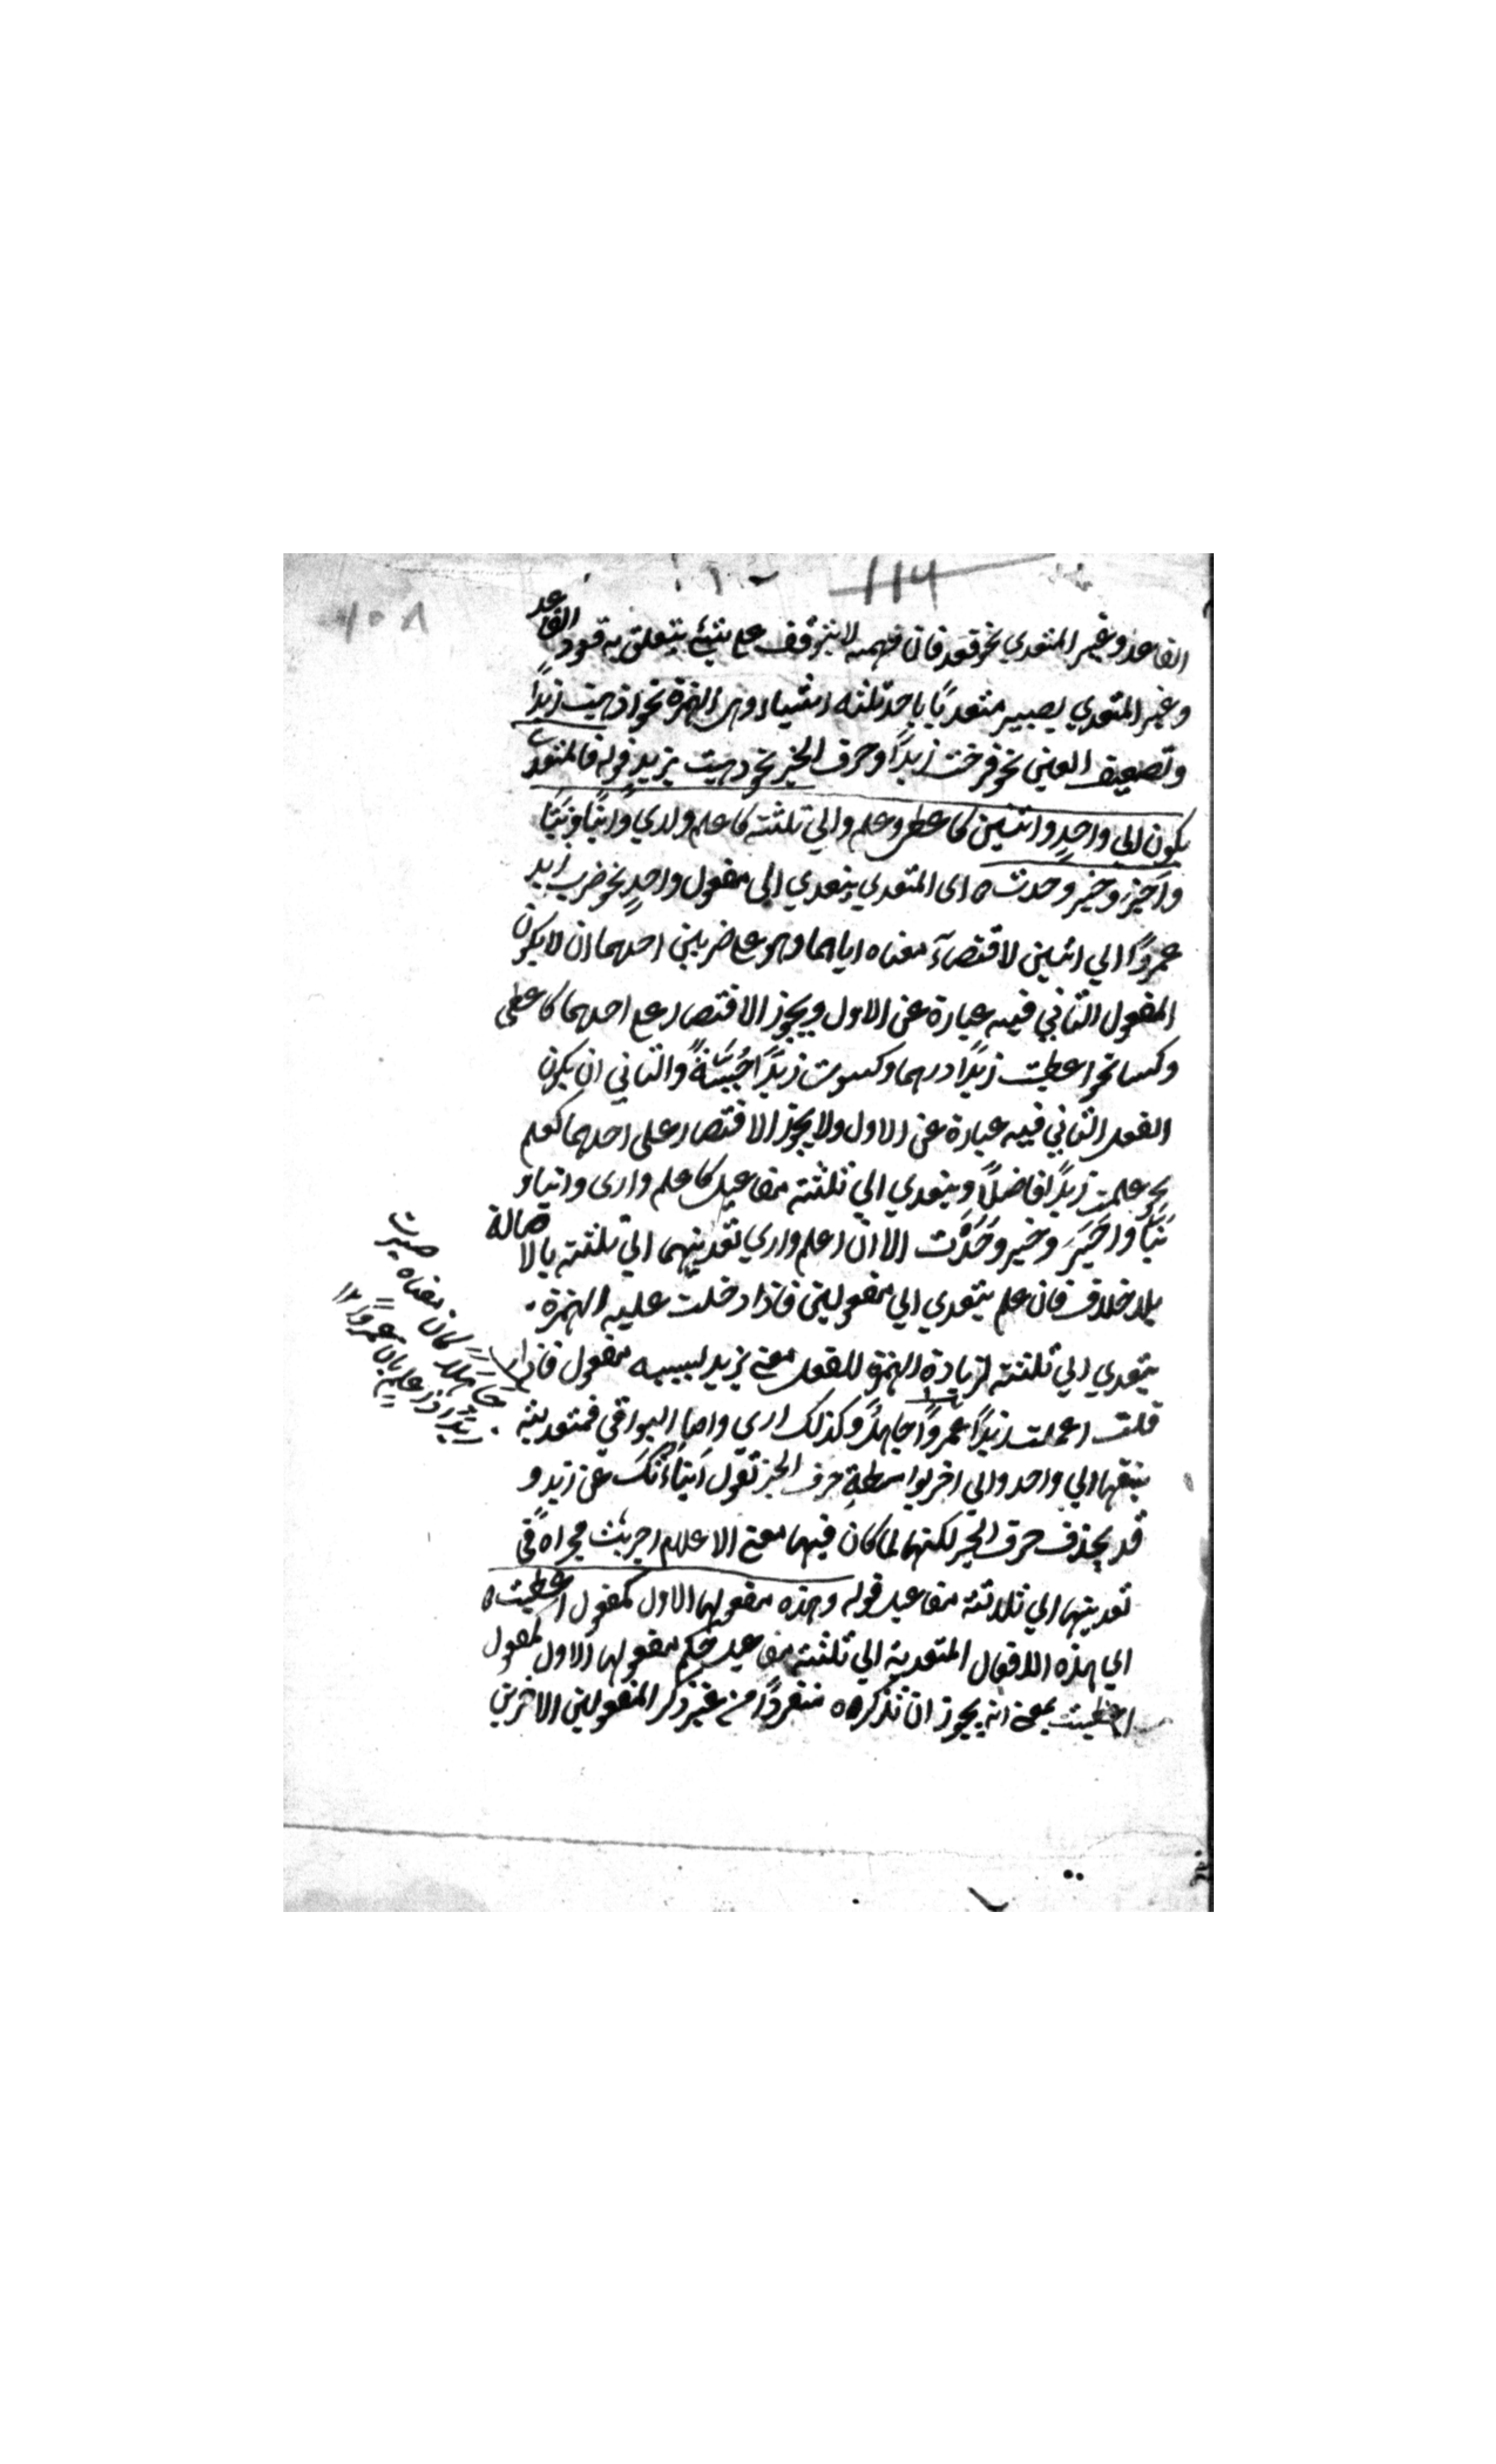 ١١٤
١٥٨
الفاعد وغير المتعدي نحو قعد فان فهمه لا يتوقف على شيئ يتعلق به قعود القاعد
وغير المتعدي يصير متعديًا باحد ثلثه اشياء وهى الهمزة نحو اذهبت زيدًا
وتضعيف العين نحو فرحت زيدًا وحرف الجر نحو ذهبت بزيد قوله فالمتعدى
يكون الى واحدٍ واثنين كاعطى وعلم والي ثلثته كاعلم وارى وانبأ ونبأ
واخبر وخبر وحدث ه اى المتعدي يتعدي الى مفعول واحدٍ نحو ضرب زيد
عمروًا الي اثنين لاقتضآء معناه اياهما وهو على ضربين احدهما ان لا يكون
المفعول الثاني فيه عبارة عن الاول ويجوز الاقتصار على احدهما كاعطى
وكسا نحو اعطيت زيدًا درهما وكسوت زيدًا جُبّةً والثاني ان يكون
المفعول الثاني فيه عبارة عن الاول ولا يجوز الاقتصار على احدهما كعلم
نحو علمت زيدًا فاضلًا ويتعدي الي ثلثته مفاعيل كاعلم وارى وانبا و
نَبّأ واخبَرَ وخبر وحَدَّث الا ان اعلم واري تعديتهما الي ثلثته بالاصالة
بلا خلاف فان علم يتعدي الي مفعولين فاذا دخلت عليه الهمزة
يتعدي الي ثلثته لزيادة الهمزة للفعل معنى يزيد لسببه مفعول فاذا
قلت اعلمت زيدًا عمروًا جاهلًا وكذلك ارى واما البواقي فمتعدية
بنفسها الي واحد والي اخر بواسطة حرف الجر تقول انبأتك عن زيد و
قد يحذف حرف الجر لكنها لما كان فيها معنى الاعلام اجريت مجراه في
تعديتها الي ثلاثته مفاعيل قوله وهذه مفعولها الاول كمفعول اعطيت ه
اي هذه الافعال المتعدية الي ثلثته مفاعيل حكم مفعولها الاول كمفعول
اعطيت بمعنى انه يجوز ان تذكره منفردًا من غير ذكر المفعولين الاخرين
جاهلا كان معناه صيرت
زيدًا ذا علم بان عمروًا ١٢